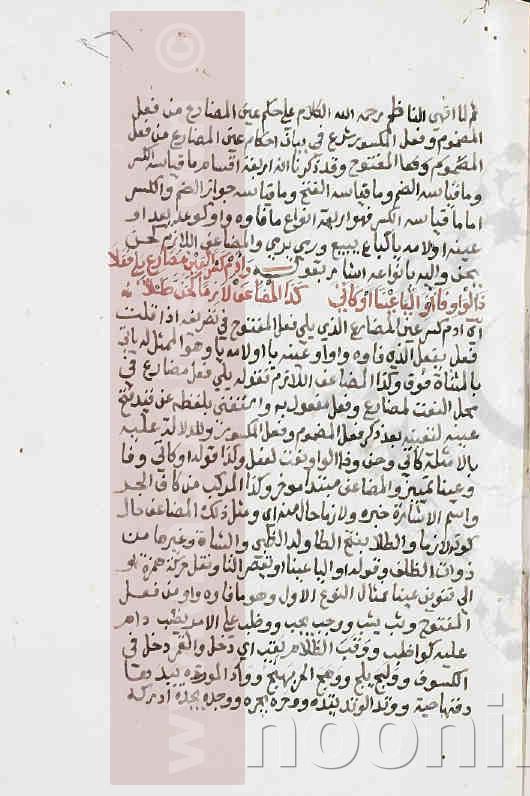 ثم لما انهى الناظم رحمه الله الكلام على حكم عين المضارع من فعل
المضموم وفعل المكسور شرع في بيان احكام عين المضارع من فعل
المفتوح وقد ذكرنا انه اربعة اقسام ما قياسه الكسر
وما قياسه الضم وما قياسه الفتح وما قياسه جواز الضم والكسر
اما ما قياسه الكسر فهو اربعة انواع ما فاوه واو كوعد يعد او
عينه او لامه يا كباع يبيع ورمى يرمي والمضاعف اللازم كحن
يحن واليه بانواعه اشار بقوله وادم كسر لعين مضارع يلي فعلا
ذا الواو فاء او اليا عينا او كاتى كذا المضاعف لازما كحن طلا
اي ادم كسر عين المضارع الذي يلي فعل المفتوح في تصريفه اذا قلت
فعل يفعل الذي فاوه واو او عينه يا او لامه يا وهو الممثل له باتى
بالمثناة فوق وكذا المضاعف اللازم فقوله يلي فعل مضارع في
محل النعت لمضارع وفعل مفعول به واستغنى بلفظه عن تقييده بفتح
عينه لتعينه بعد ذكر فعل المضموم وفعل المكسور وللدلالة عليه
بالامثلة كاتى وحن وذا الواو نعت لفعل وكذا قوله او كاتى وفا
وعينا تمييز والمضاعف مبتدا موخر وكذا المركب من كاف الجر
واسم الاشارة خبره ولازما حال منه اي ومثل ذلك المضاعف حال
كونه لازما والطلا بفتح الطا ولد الظبي والشاة وغيرها من
ذوات الظلف وقوله او اليا عينا او بقصر التا ونقل حركة همزة او
الى تنوين عينا مثال النوع الاول وهو ما فاوه واو من فعل
المفتوح وثب يثب ووجب يجب ووظب على الامر يظب دام
عليه كواظب ووقب الظلام يقب اي دخل والقمر دخل في
الكسوف وولج يلج ووهج الحر يهج وواد الموودة يئدها
دفنها حية ووتد الوتد يتده ووجره يجره ووجده يجده ادركه
nooni